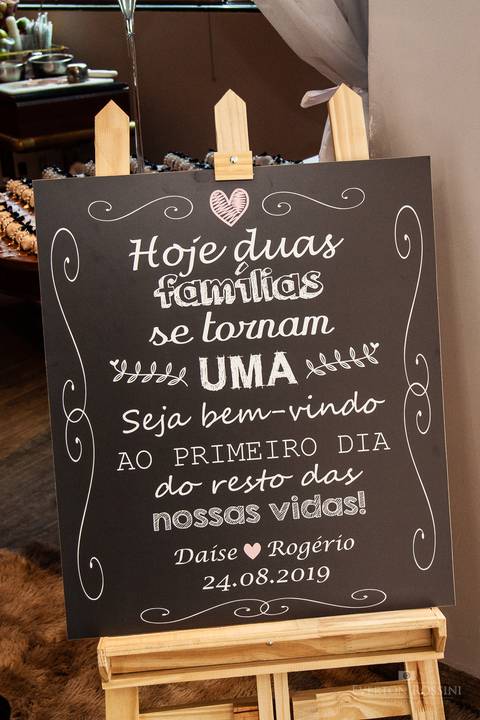 Hoje duas
famílias
se tornam
UMA
Seja bem-vindo
AO PRIMEIRO DIA
do resto das
nossas vidas!
Daíse Rogério
24.08.2019
EVERTON ROSSINI